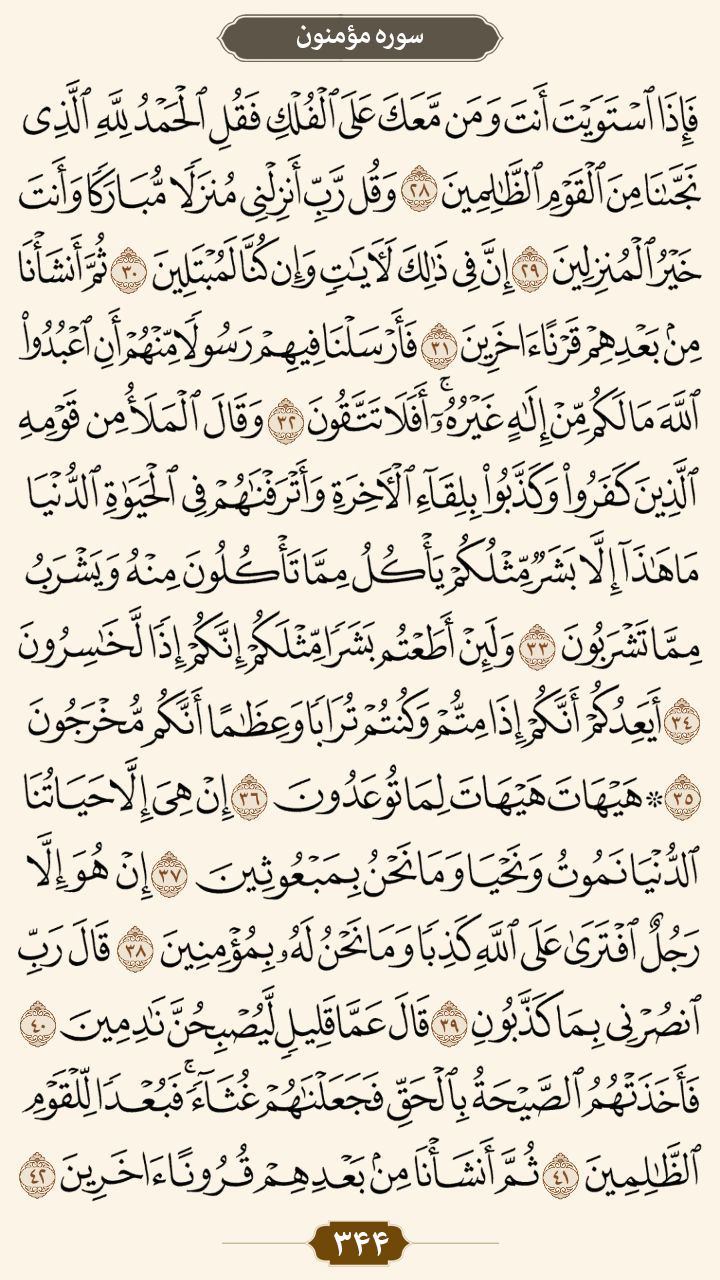 سوره مؤمنون
فَإِذَا ٱسْتَوَيْتَ أَنتَ وَمَن مَّعَكَ عَلَى ٱلْفُلْكِ فَقُلِ ٱلْحَمْدُ لِلَّهِ ٱلَّذِى
نَجَّىٰنَا مِنَ ٱلْقَوْمِ ٱلظَّٰلِمِينَ ٢٨ وَقُل رَّبِّ أَنزِلْنِى مُنزَلًا مُّبَارَكًا وَأَنتَ
خَيْرُ ٱلْمُنزِلِينَ ٢٩ إِنَّ فِى ذَٰلِكَ لَءَايَٰتٍ وَإِن كُنَّا لَمُبْتَلِينَ ٣٠ ثُمَّ أَنشَأْنَا
مِنۢ بَعْدِهِمْ قَرْنًا ءَاخَرِينَ ٣١ فَأَرْسَلْنَا فِيهِمْ رَسُولًا مِّنْهُمْ أَنِ ٱعْبُدُوا۟
ٱللَّهَ مَا لَكُم مِّنْ إِلَٰهٍ غَيْرُهُۥٓ ۚ أَفَلَا تَتَّقُونَ ٣٢ وَقَالَ ٱلْمَلَأُ مِن قَوْمِهِ
ٱلَّذِينَ كَفَرُوا۟ وَكَذَّبُوا۟ بِلِقَآءِ ٱلْءَاخِرَةِ وَأَتْرَفْنَٰهُمْ فِى ٱلْحَيَوٰةِ ٱلدُّنْيَا
مَا هَٰذَآ إِلَّا بَشَرٌ مِّثْلُكُمْ يَأْكُلُ مِمَّا تَأْكُلُونَ مِنْهُ وَيَشْرَبُ
مِمَّا تَشْرَبُونَ ٣٣ وَلَئِنْ أَطَعْتُم بَشَرًا مِّثْلَكُمْ إِنَّكُمْ إِذًا لَّخَٰسِرُونَ
٣٤ أَيَعِدُكُمْ أَنَّكُمْ إِذَا مِتُّمْ وَكُنتُمْ تُرَابًا وَعِظَٰمًا أَنَّكُم مُّخْرَجُونَ
٣٥ * هَيْهَاتَ هَيْهَاتَ لِمَا تُوعَدُونَ ٣٦ إِنْ هِىَ إِلَّا حَيَاتُنَا
ٱلدُّنْيَا نَمُوتُ وَنَحْيَا وَمَا نَحْنُ بِمَبْعُوثِينَ ٣٧ إِنْ هُوَ إِلَّا
رَجُلٌ ٱفْتَرَىٰ عَلَى ٱللَّهِ كَذِبًا وَمَا نَحْنُ لَهُۥ بِمُؤْمِنِينَ ٣٨ قَالَ رَبِّ
ٱنصُرْنِى بِمَا كَذَّبُونِ ٣٩ قَالَ عَمَّا قَلِيلٍ لَّيُصْبِحُنَّ نَٰدِمِينَ ٤٠
فَأَخَذَتْهُمُ ٱلصَّيْحَةُ بِٱلْحَقِّ فَجَعَلْنَٰهُمْ غُثَآءً ۚ فَبُعْدًا لِّلْقَوْمِ
ٱلظَّٰلِمِينَ ٤١ ثُمَّ أَنشَأْنَا مِنۢ بَعْدِهِمْ قُرُونًا ءَاخَرِينَ ٤٢
۳۴۴